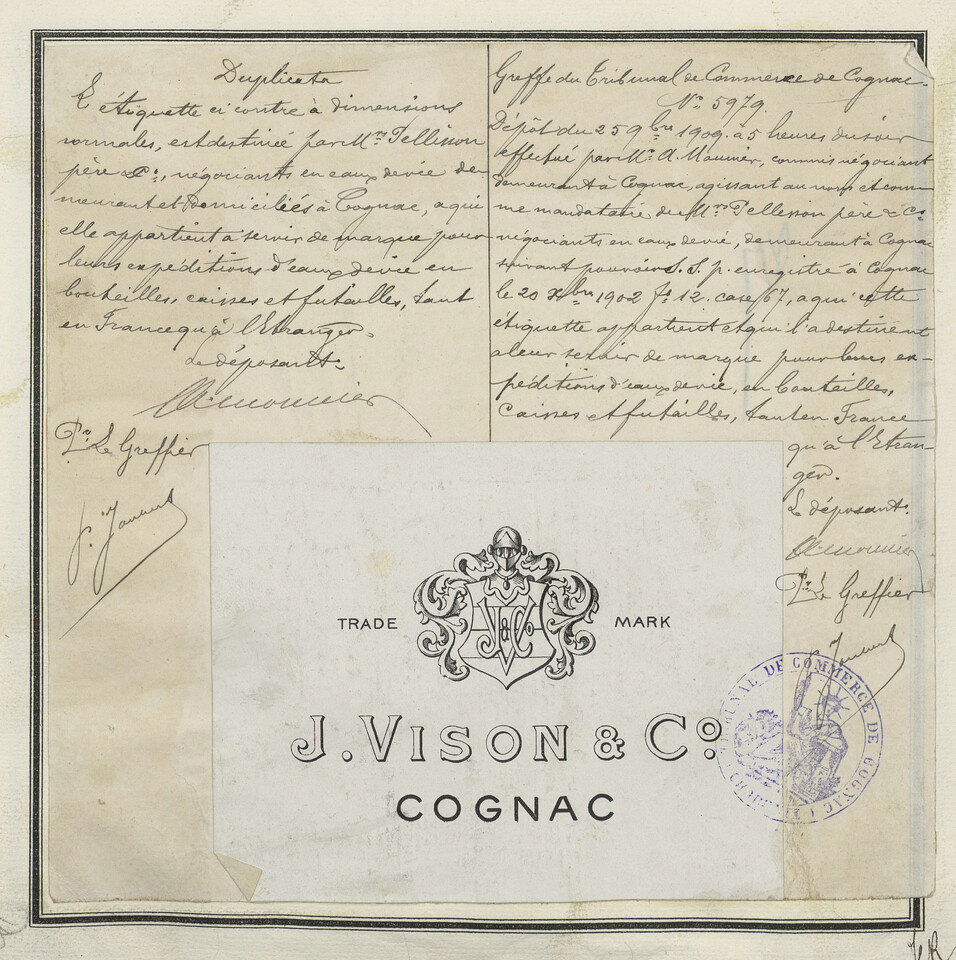 Duplicata
L'étiquette ci contre à dimensions
normales, est destinée par Mrs Pellisson
père & Co, négociants en eaux devie de-
meurant et Domiciliés à Cognac, a qui
elle appartient a servir de marque pour
leurs expéditions d'eaux devie en
bouteilles, caisses et futailles, tant
en France qu'à l'Etranger.
Le déposant.
A. Mounier
Pr Le Greffier
Greffe du Tribunal de Commerce de Cognac.
No 5979.
Dépôt du 25 9bre 1909. à 5 heures du soir
effectué par Mr A. Mounier, commis négociant
demeurant à Cognac, agissant au nom et com-
me mandataire de Mrs Pellisson père & Co
négociants en eaux devie, demeurant à Cognac
suivant pouvoir S.S.p. enregistré à Cognac
le 20 Xbre 1902 Fo 12. case 67, a qui cette
étiquette appartient et qui l'a destinent
a leur servir de marque pour leurs ex-
péditions d'eaux devie, en bouteilles,
caisses et futailles, tant en France
qu'à l'Etran-
ger.
Le déposant.
A. Mounier
Pr Le Greffier
TRADE MARK
V & Co
J. VISON & Co
COGNAC
TRIBUNAL DE COMMERCE DE COGNAC